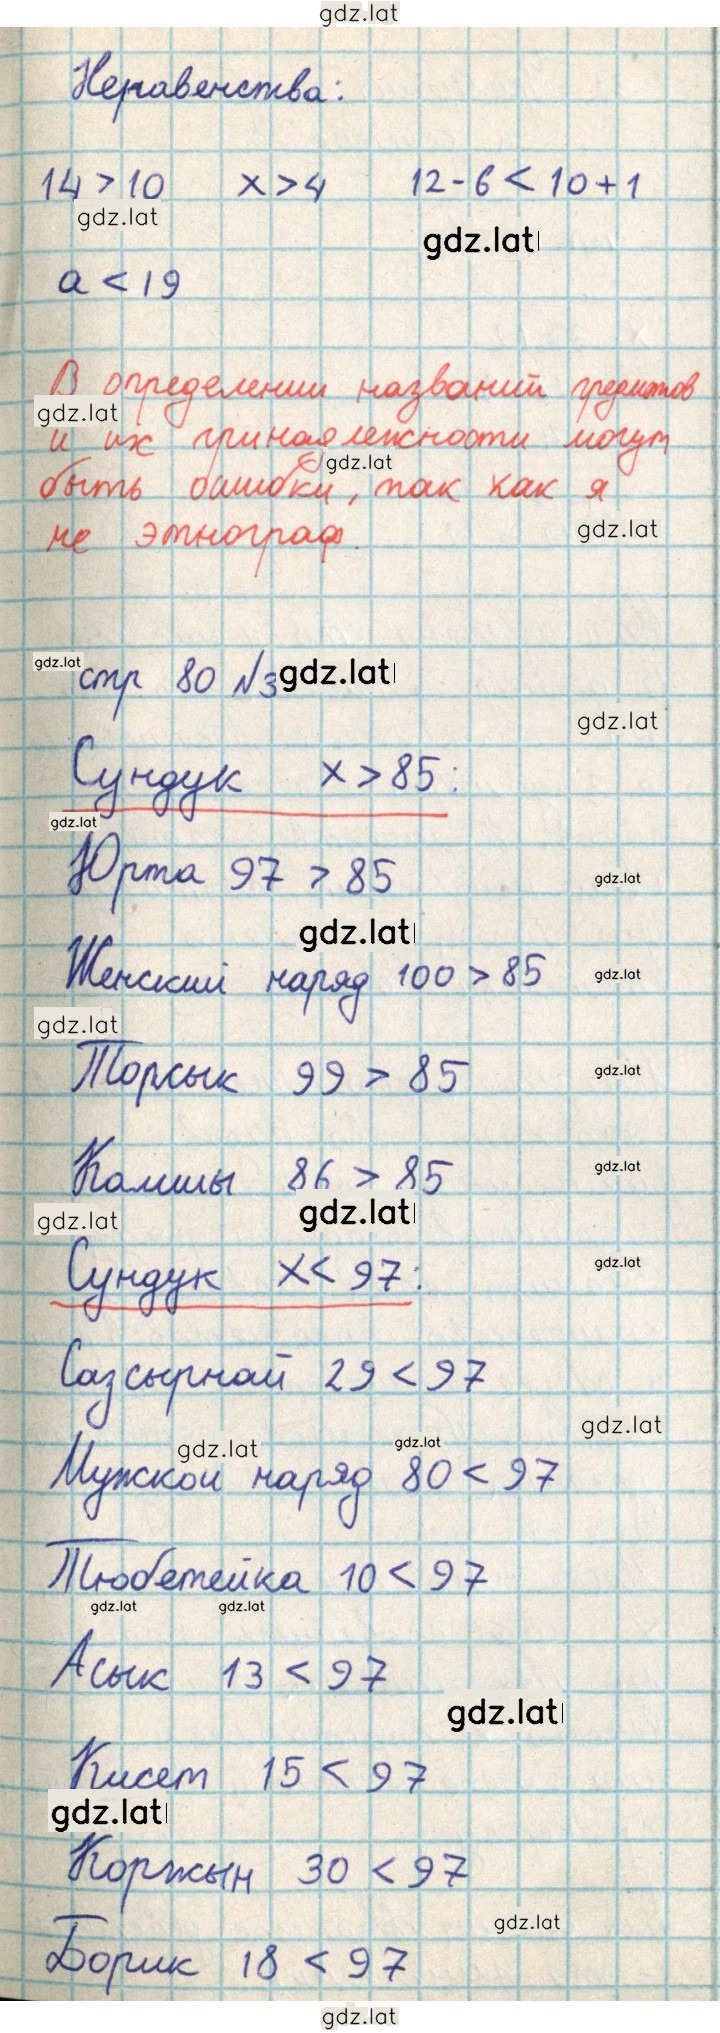 gdz.lat
Неравенства:
14 > 10 x > 4 12 - 6 < 10 + 1
gdz.lat gdz.lat
a < 19
В определении названий предметов
gdz.lat
и их принадлежности могут
gdz.lat
быть ошибки, так как я
gdz.lat
не этнограф.
gdz.lat стр 80 №3 gdz.lat
gdz.lat
Сундук x > 85:
gdz.lat
Юрта 97 > 85 gdz.lat
gdz.lat
Женский наряд 100 > 85 gdz.lat
gdz.lat
Торсык 99 > 85 gdz.lat
Камшы 86 > 85 gdz.lat
gdz.lat gdz.lat
Сундук x < 97: gdz.lat
Сазсырнай 29 < 97
gdz.lat
gdz.lat gdz.lat
Мужской наряд 80 < 97
Тюбетейка 10 < 97
gdz.lat gdz.lat
Асык 13 < 97
gdz.lat
Кисет 15 < 97
gdz.lat
Коржын 30 < 97
gdz.lat
Борик 18 < 97
gdz.lat